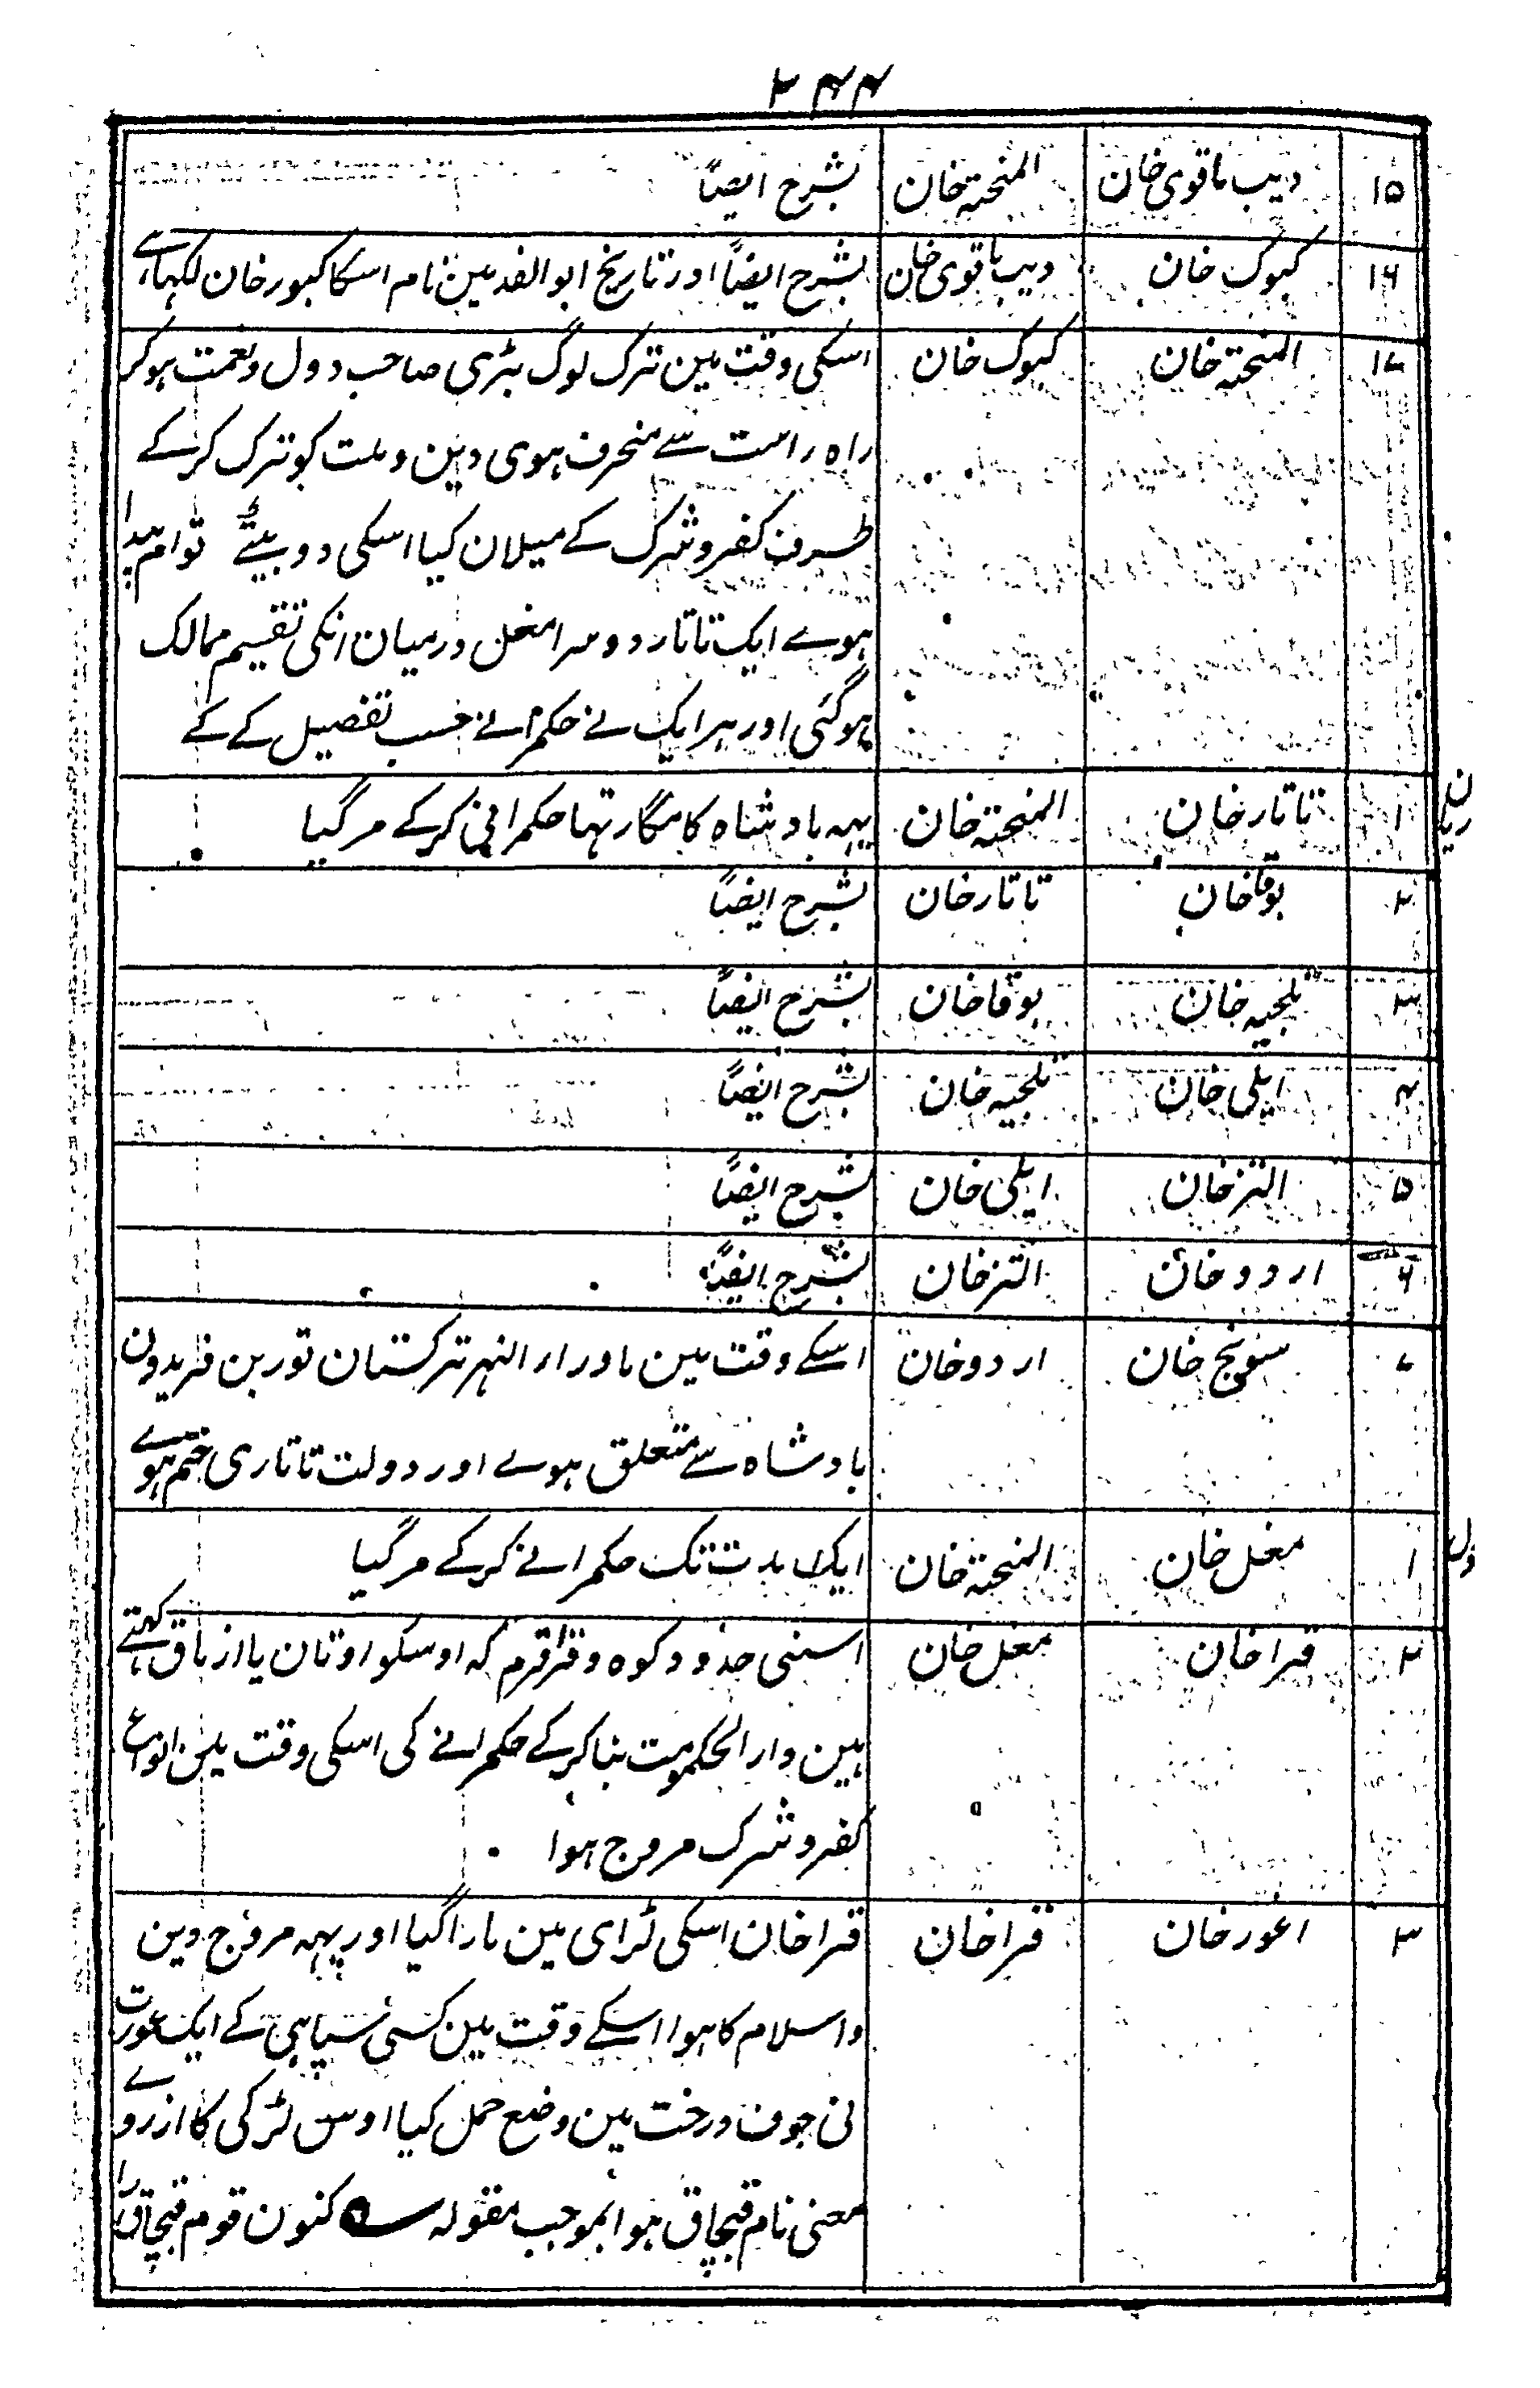 ۲۴۴
۱۵ دیب باقوی خان المنجہ خان بشرح ایضاً
۱۶ کیوک خان دیب باقوی خان بشرح ایضاً اور تاریخ ابوالفد مین نام اسکا کیور خان لکہا ہے
۱۷ المنجہ خان کیوک خان اسکی وقت مین ترک لوگ بڑی صاحب دول ونعمت ہوکر
راہ راست سے منحرف ہوی دین وملت کو ترک کرکے
طرف کفر وشرک کے میلان کیا اسکی دو بیٹے توام پیدا
ہوے ایک تاتار دوسرا مغل درمیان انکی تقسیم ممالک
ہوگئی اور ہر ایک نے حکمرانے حسب تفصیل کے کے
۱ تاتار خان المنجہ خان یہہ بادشاہ کامگار تہا حکمرانی کرکے مرگیا
۲ بوقا خان تاتار خان بشرح ایضاً
۳ یلجیہ خان بوقا خان بشرح ایضاً
۴ ایلی خان یلجیہ خان بشرح ایضاً
۵ التز خان ایلی خان بشرح ایضاً
۶ اردو خان التز خان بشرح ایضاً
۷ سونج خان اردو خان اسکے وقت مین ماورار النہر ترکستان تور بن فریدون
بادشاہ سے متعلق ہوے اور دولت تاتاری ختم ہوے
۱ مغل خان المنجہ خان ایک مدت تک حکمرانے کرکے مرگیا
۲ قرا خان مغل خان اسنی حدود کوہ و قراقرم کہ اوسکو اوتان یا ازناق کہتے
ہین دار الحکومت بنا کرکے حکمرانے کی اسکی وقت مین انواع
کفر وشرک مروج ہوا
۳ اغور خان قرا خان قرا خان اسکی لڑای مین مارا گیا اور یہہ مروج دین
واسلام کا ہوا اسکے وقت مین کسی سپاہی کے ایک عورت
نی جوف درخت مین وضع حمل کیا اوس لڑکی کا ازروے
معنی نام قبچاق ہوا بموجب مقولہ ؎ کنون قوم قبچاق را